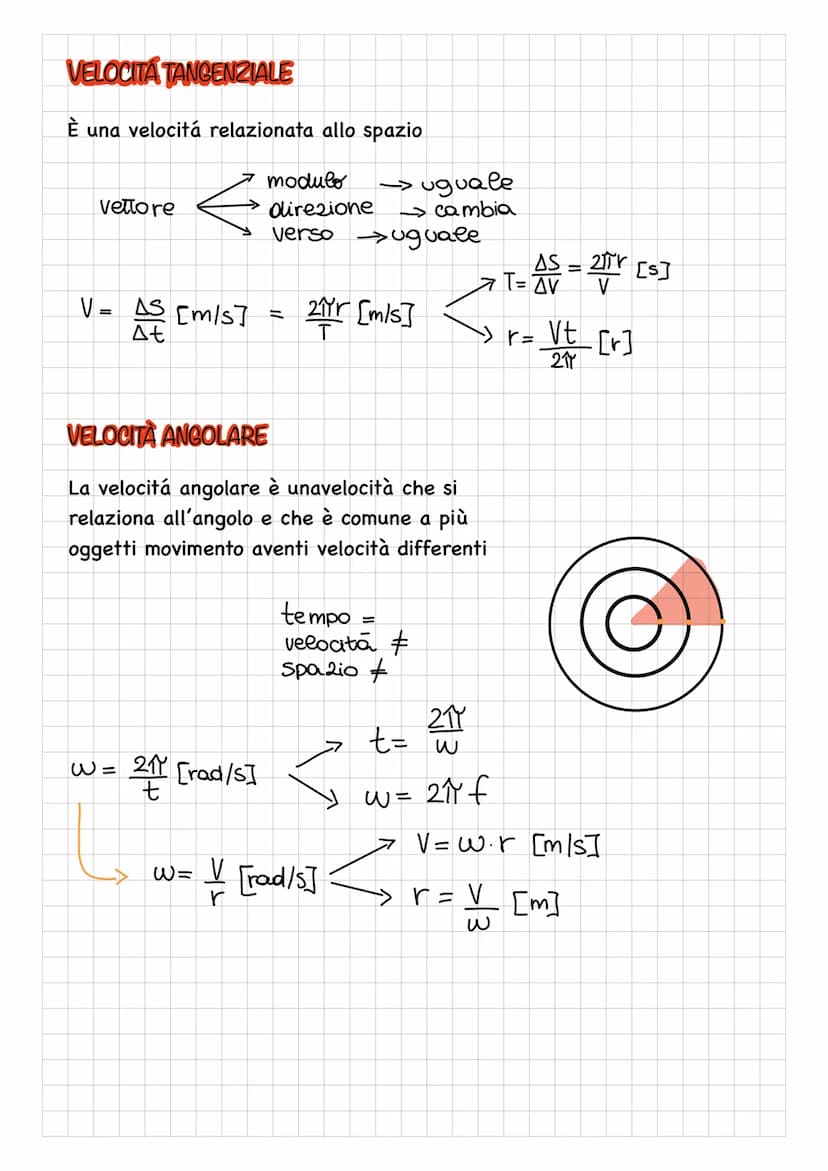 VELOCITÁ TANGENZIALE
È una velocitá relazionata allo spazio
vettore
modulo → uguale
direzione → cambia
verso → uguale
V = ΔS/Δt [m/s] = 2πr/T [m/s]
T = ΔS/ΔV = 2πr/V [s]
r = Vt/2π [r]
VELOCITÀ ANGOLARE
La velocitá angolare è unavelocità che si
relaziona all'angolo e che è comune a più
oggetti movimento aventi velocità differenti
tempo =
velocità ≠
spazio ≠
ω = 2π/t [rad/s]
t = 2π/ω
ω = 2π f
ω = V/r [rad/s]
V = ω·r [m/s]
r = V/ω [m]